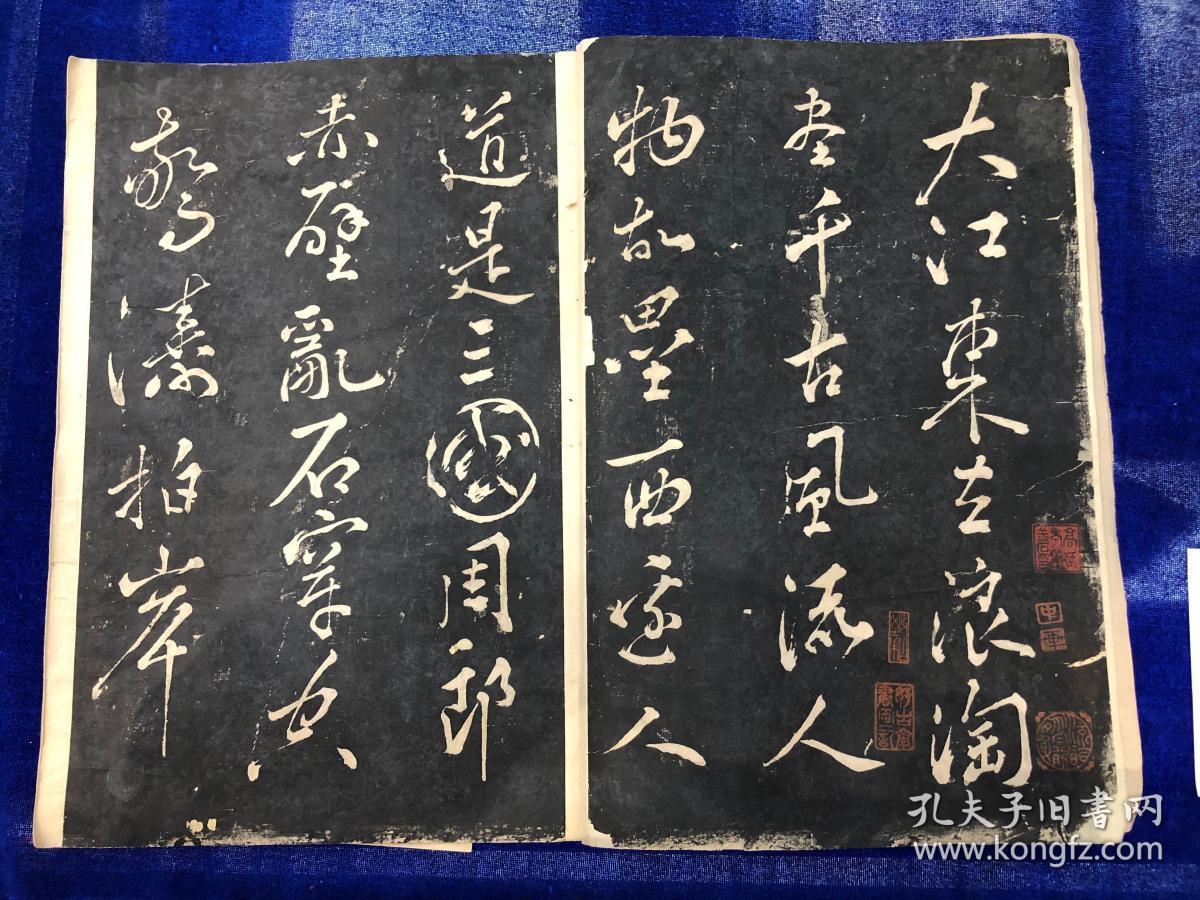 大江東去浪淘
尽千古風流人
物故壘西邊人
道是三國周郎
赤壁亂石穿空
驚濤拍岸
孔夫子旧書网
www.kongfz.com